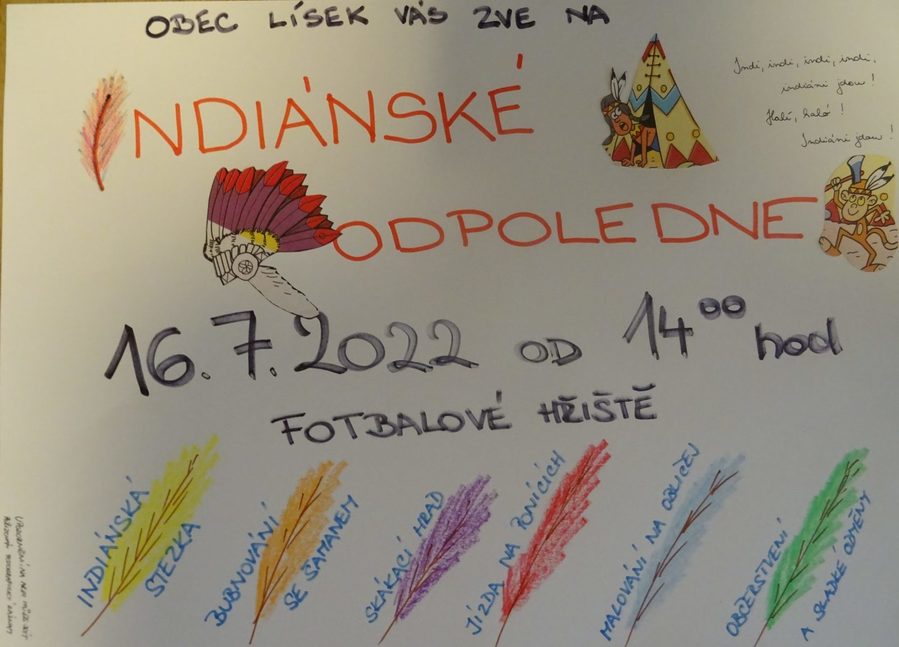 OBEC LÍSEK VÁS ZVE NA
INDIÁNSKÉ
ODPOLEDNE
Indi, indi, indi, indi,
indiáni jdou!
Halí, haló!
Indiáni jdou!
16.7.2022 OD 14⁰⁰ hod
FOTBALOVÉ HŘIŠTĚ
INDIÁNSKÁ
STEZKA
BUBNOVÁNÍ
SE ŠAMANEM
SKÁKACÍ HRAD
JÍZDA NA PONÍCÍCH
MALOVÁNÍ NA OBLIČEJ
OBČERSTVENÍ
A SLADKÉ ODMĚNY
UPOZORNĚNÍ: NA AKCI MŮŽE BÝT